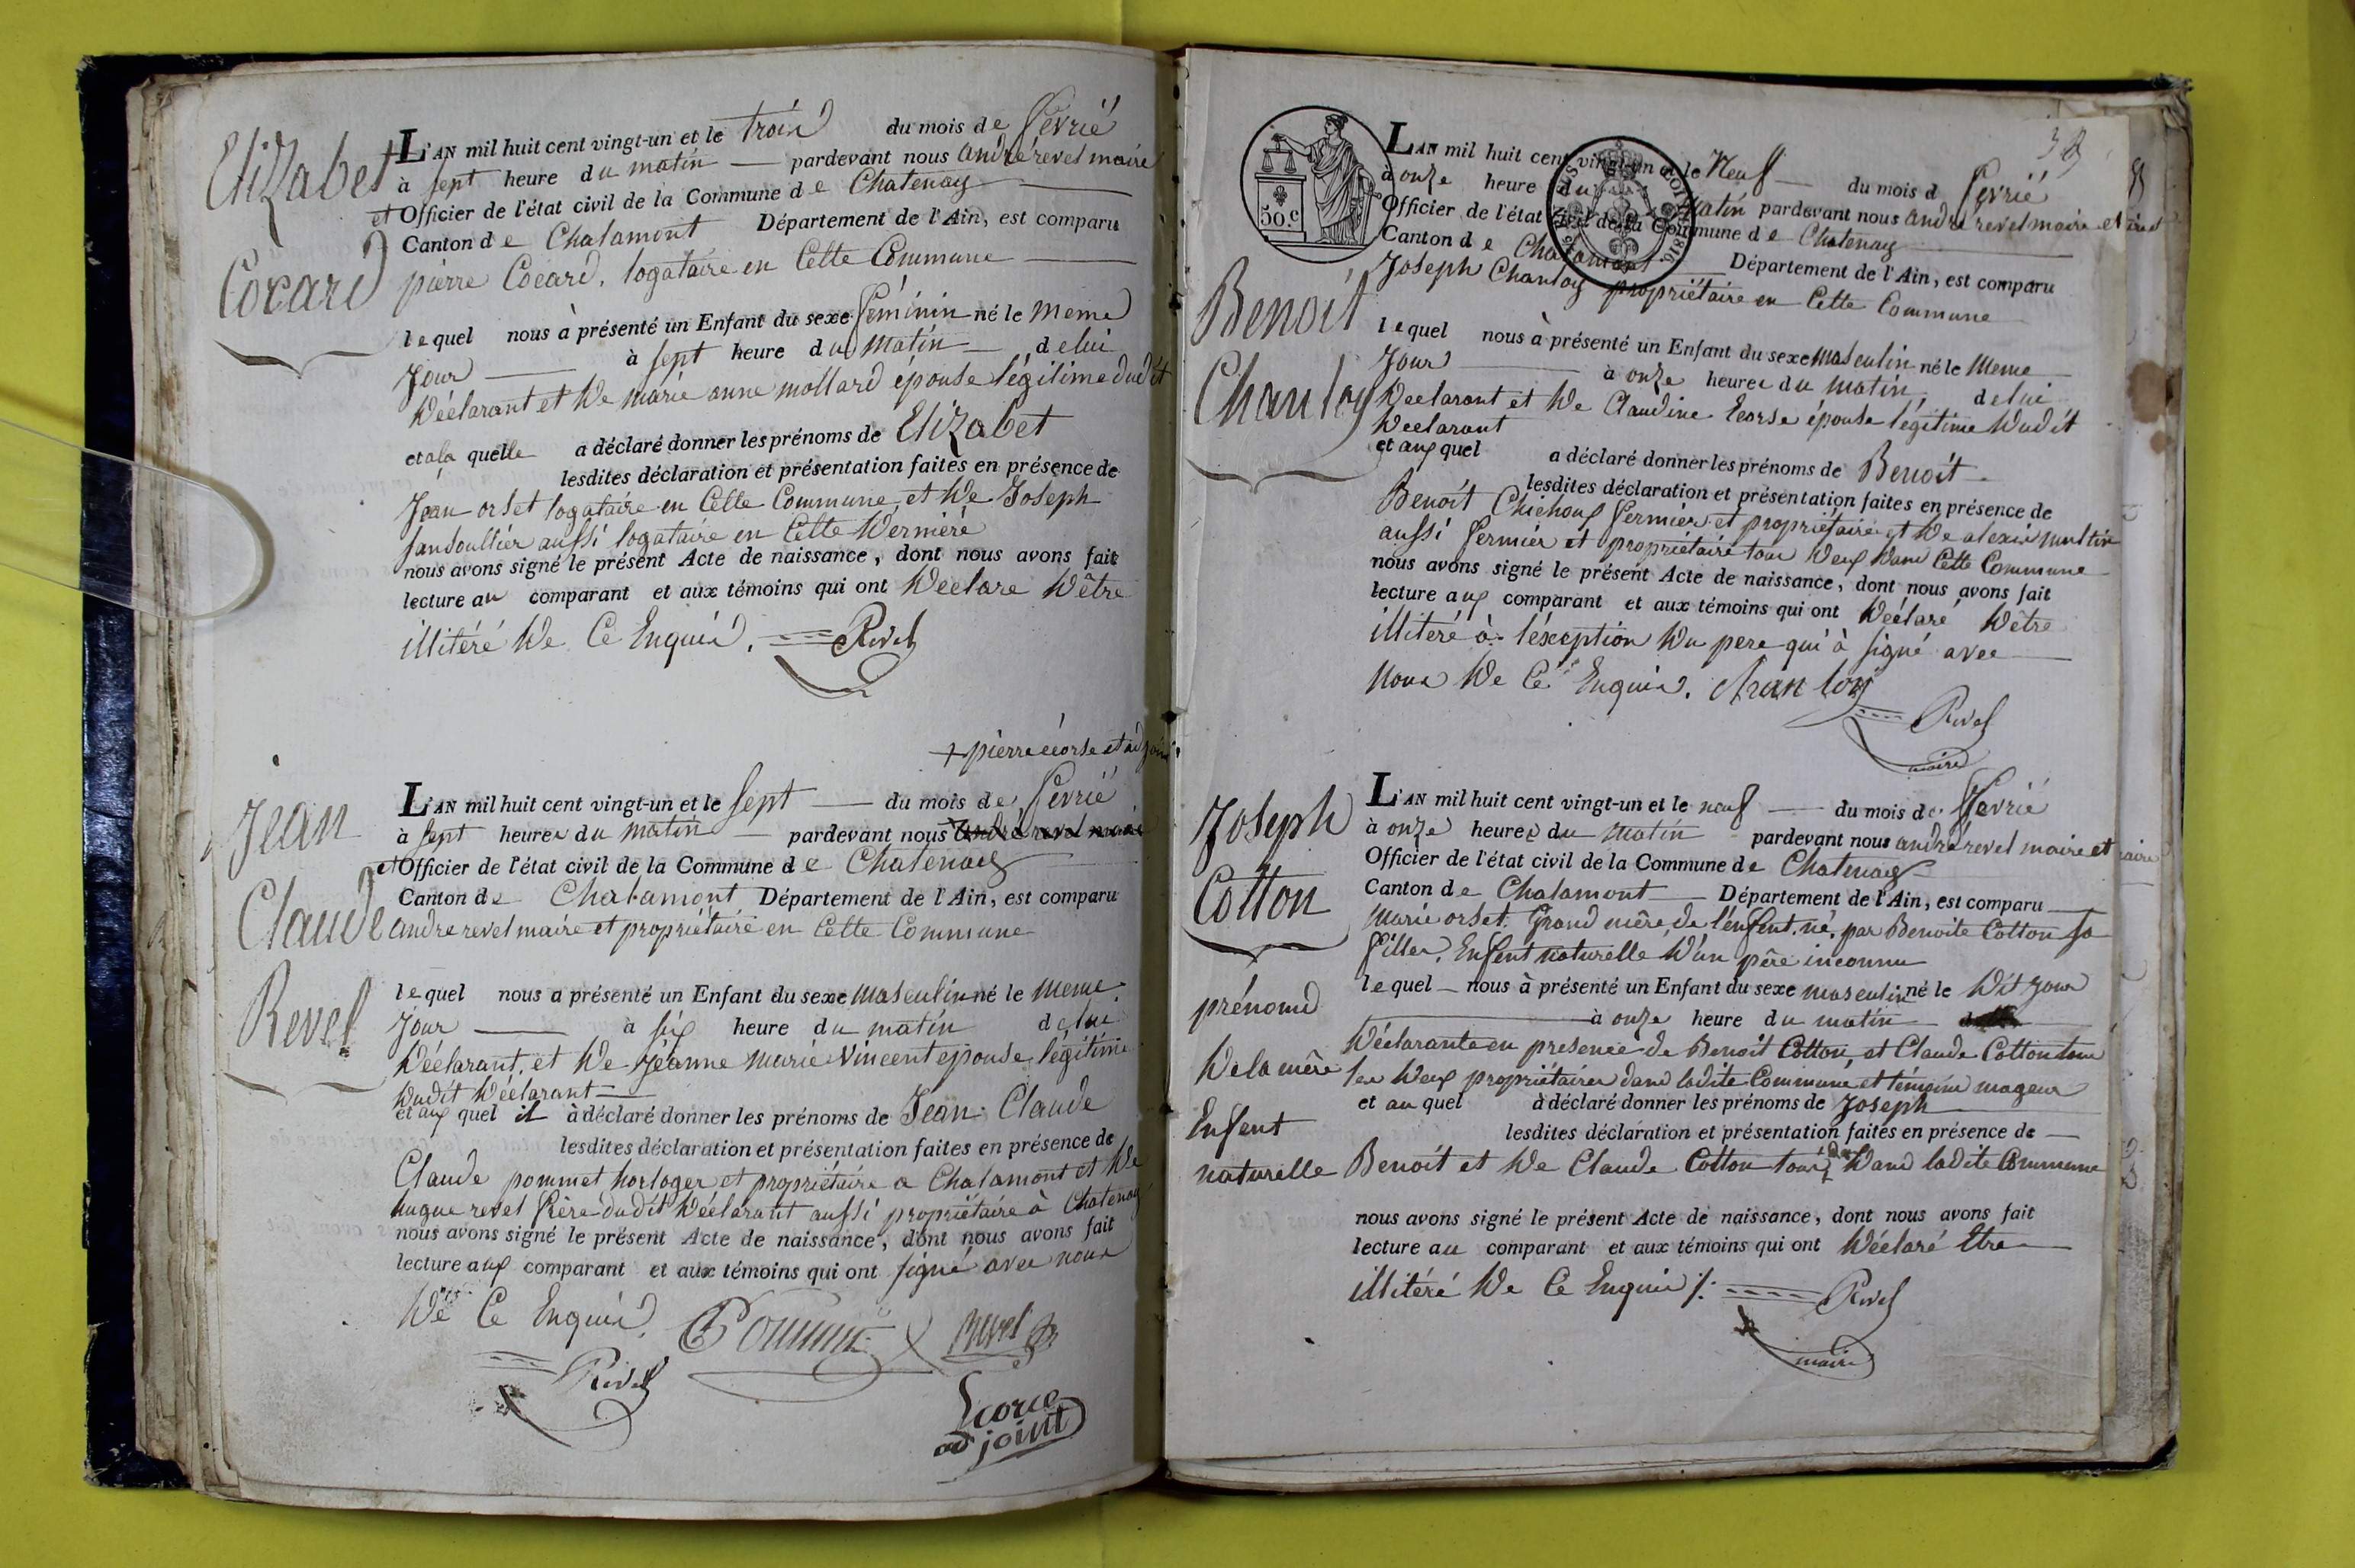 Elizabet
Cocard
L'AN mil huit cent vingt-un et le trois du mois de fevrié
à sept heure du matin pardevant nous andré revel maire
et Officier de l'état civil de la Commune de Chatenay
Canton de Chalamont Département de l'Ain, est comparu
pierre Cocard, logataire en Cette Commune
lequel nous à présenté un Enfant du sexe féminin né le meme
Jour à sept heure du matin de lui
déclarant et de marie anne mollard epouse légitime dudit
et a la quelle a déclaré donner les prénoms de Elizabet
lesdites déclaration et présentation faites en présence de
Jean orset logataire en Cette Commune, et de Joseph
aussi logataire en Cette derniere
nous avons signé le présent Acte de naissance, dont nous avons fait
lecture au comparant et aux témoins qui ont declare d'être
illitéré de Ce Enquis. Revel
+ pierre écorse et adjoint
Jean
Claude
Revel
L'AN mil huit cent vingt-un et le sept du mois de fevrié
à sept heures du matin pardevant nous + andré revel maire
et Officier de l'état civil de la Commune de Chatenay
Canton de Chalamont Département de l'Ain, est comparu
andre revel maire et propriétaire en Cette Commune
lequel nous a présenté un Enfant du sexe masculin né le meme
Jour à six heure du matin de lui
déclarant, et de jeanne marie Vincent epouse légitime
dudit déclarant
et aux quel il à déclaré donner les prénoms de Jean Claude
lesdites déclaration et présentation faites en présence de
Claude pommet horloger et propriétaire a Chalamont et de
hugue revel frère dudit déclarant aussi propriétaire à Chatenay
nous avons signé le présent Acte de naissance, dont nous avons fait
lecture aux comparant et aux témoins qui ont signé avec nous
de Ce Enquis.
Revel
Revel
Ecorce
adjoint
50 c.
Benoit
Chanloy
L'AN mil huit cent vingt-un et le Neuf du mois d fevrié
à onze heure du matin pardevant nous andré revel maire et
Officier de l'état civil de la Commune de Chatenay
Canton de Chalamont Département de l'Ain, est comparu
Joseph Chanloy propriétaire en Cette Commune
lequel nous à présenté un Enfant du sexe masculin né le meme
Jour à onze heure du matin, de lui
declarant et de Claudine Ecorse épouse légitime dudit
declarant
et aux quel a déclaré donner les prénoms de Benoit
lesdites déclaration et présentation faites en présence de
Benoit Chichoux fermier et propriétaire et de alexis
aussi fermier et propriétaire tous deux dans Cette Commune
nous avons signé le présent Acte de naissance, dont nous avons fait
lecture aux comparant et aux témoins qui ont déclaré d'être
illitéré à l'éxception du pere qui à signé avec
nous de Ce Enquis. Chanloy
Revel
maire
Joseph
Cotton
prénoms
de la mère
Enfent
naturelle
L'AN mil huit cent vingt-un et le neuf du mois de fevrié
à onze heures du matin pardevant nous andré revel maire et
Officier de l'état civil de la Commune de Chatenay
Canton de Chalamont Département de l'Ain, est comparu
marie orset. Grand mère, de l'enfent. né, par Benoite Cotton sa
filles, Enfent naturelle d'un père inconnu
lequel nous à présenté un Enfant du sexe masculin né le dit jour
à onze heure du matin
déclarante en presence de Benoit Cotton, et Claude Cotton tous
les deux propriétaires dans ladite Commune et témoins mageur
et au quel à déclaré donner les prénoms de Joseph
lesdites déclaration et présentation faites en présence de
Benoit et de Claude Cotton tous dans ladite Commune
nous avons signé le présent Acte de naissance, dont nous avons fait
lecture au comparant et aux témoins qui ont déclaré Etre
illitéré de Ce Enquis ⁒ Revel
maire